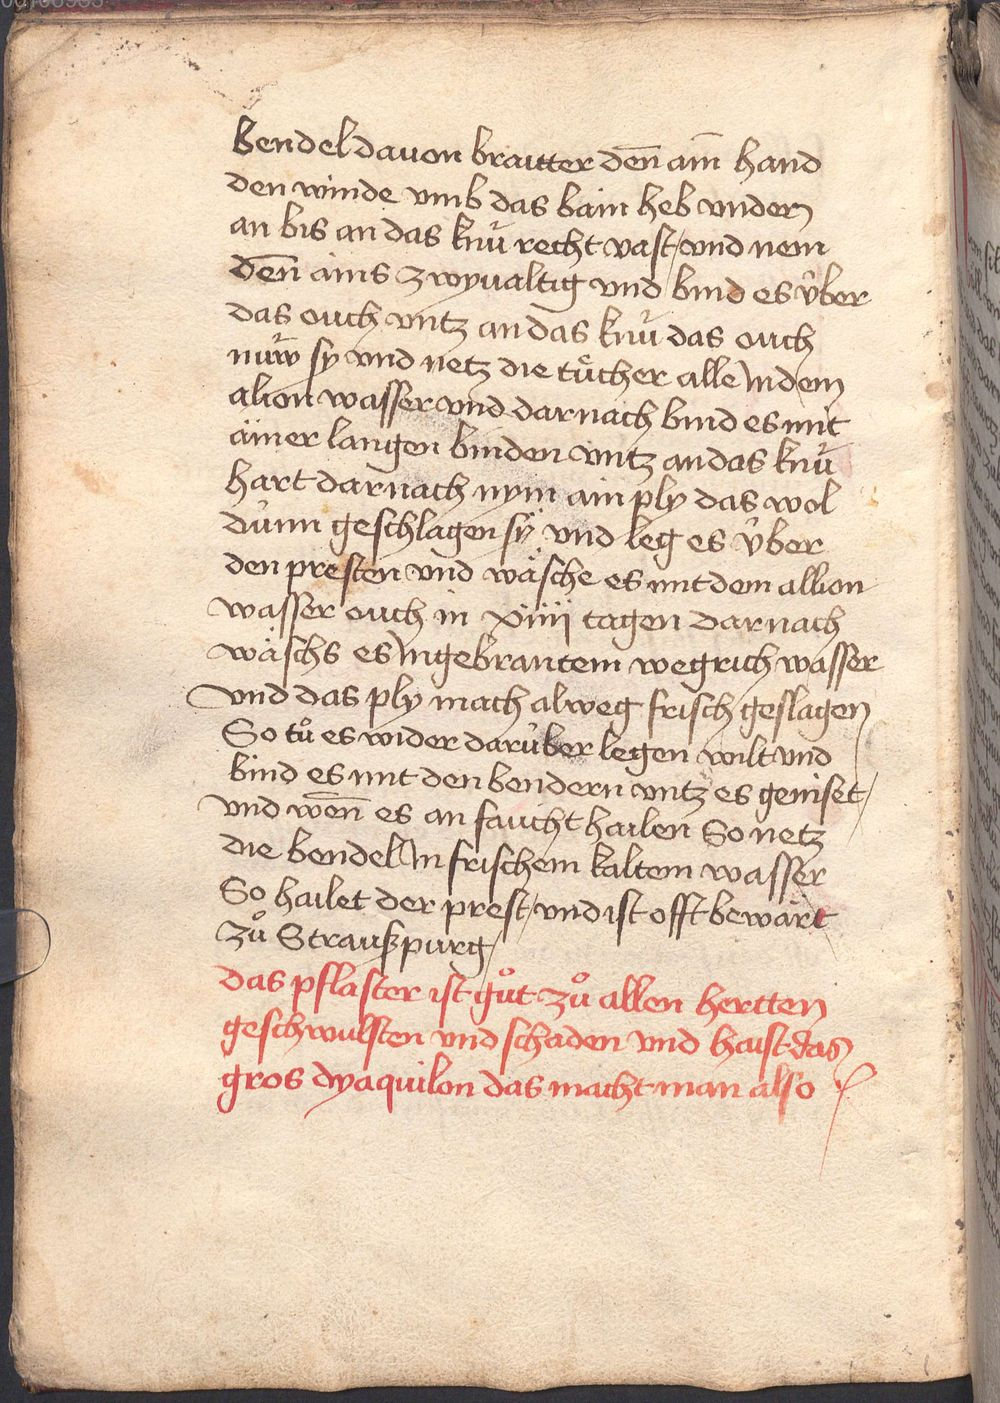 bendel dauon braitter den̄ aim̄ hand
den winde vmb das bain heb vnden
an bis an das knu̍ recht vast / vnd nem
den̄ ains zwyualtig vnd bind es v̍ber
das ouch vntz an das knu̍ das ouch
nu̍w sy vnd netz die tu̍cher alle In dem
alion wasser vnd darnach bind es mit
ainer langen binden vntz an das knu̍
hart darnach nym ain ply das wol
du̍nn geschlagen sÿ vnd leg es v̍ber
den presten vnd wäsche es mit dem allion
wasser ouch in xiiij tagen darnach
wäschs es In gebrantem wegrich wasser
vnd das ply mach alweg frisch geslagen
So tů es wider daru̍ber legen wilt vnd
bind es mit den bendern vntz es geniset /
vnd wen̄ es an faucht hailen So netz
die bendel In frischem kaltem wasser
So hailet der prest / vnd ist offt bewärt
zů Strauszpurg /
das pflaster ist gůt zů allen hertten
geschwulsten vnd schaden vnd haist das
gros dyaquilon das macht man also /